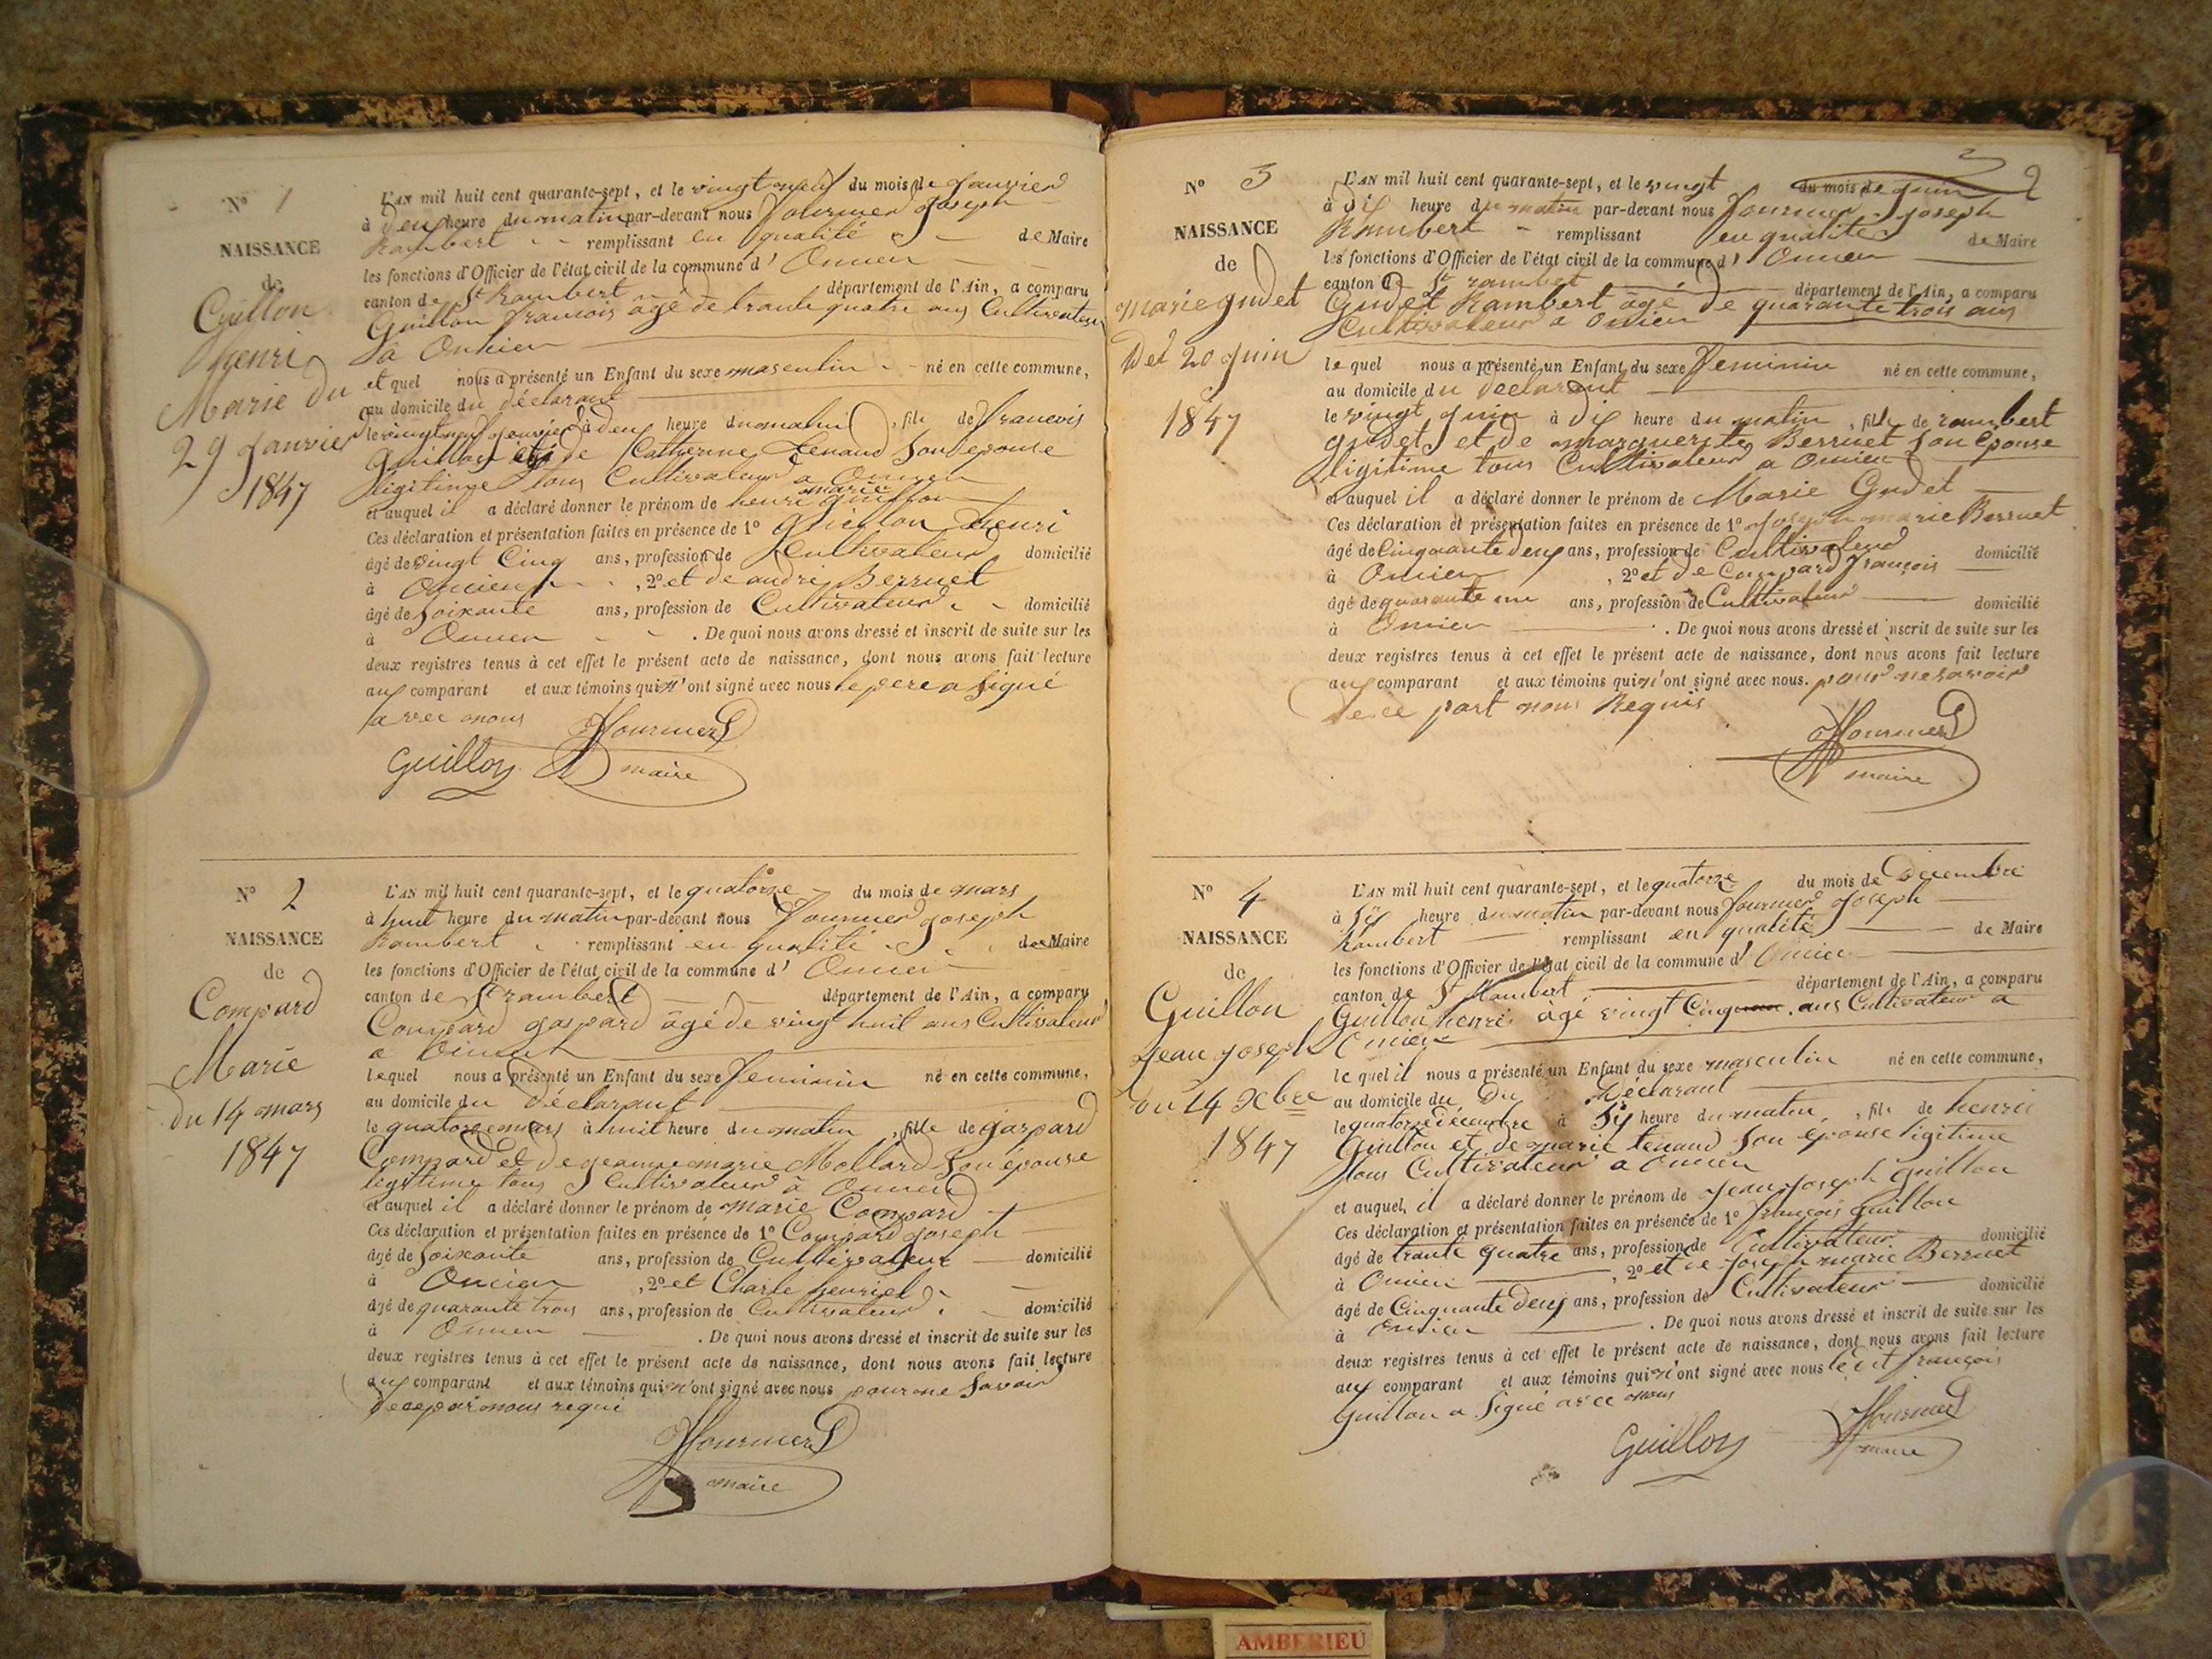 N° 1
NAISSANCE
de
Guillon
henri
Marie du
29 Janvier
1847
L'AN mil huit cent quarante-sept, et le vingt neuf du mois de Janvier
à deux heure du matin par-devant nous Fournier Joseph
Rambert remplissant en qualité de Maire
les fonctions d'Officier de l'état civil de la commune d' Oncieu
canton de St Rambert département de l'Ain, a comparu
Guillon francois âgé de trante quatre ans Cultivateur
à Oncieu
et quel nous a présenté un Enfant du sexe masculin né en cette commune,
au domicile du déclarant
le vingt neuf Janvier à deux heure du matin, fils de francois
Guillon et de Catherine Tenand Son épouse
ligitime tous Cultivateur a Oncieu
et auquel il a déclaré donner le prénom de henri marie Guillon
Ces déclaration et présentation faites en présence de 1° Guillon henri
âgé de vingt Cinq ans, profession de Cultivateur domicilié
à Oncieu, 2° et de andré Berruet
âgé de Soixante ans, profession de Cultivateur domicilié
à Oncieu. De quoi nous avons dressé et inscrit de suite sur les
deux registres tenus à cet effet le présent acte de naissance, dont nous avons fait lecture
aux comparant et aux témoins qui n'ont signé avec nous le pere a Signé
avec nous
Fournier
Guillon maire
N° 2
NAISSANCE
de
Compard
Marie
du 14 mars
1847
L'AN mil huit cent quarante-sept, et le quatorze du mois de mars
à huit heure du matin par-devant nous Fournier Joseph
Rambert remplissant en qualité de Maire
les fonctions d'Officier de l'état civil de la commune d' Oncieu
canton de St rambert département de l'Ain, a comparu
Compard gaspard âgé de vingt huit ans Cultivateur
a
lequel nous a présenté un Enfant du sexe feminin né en cette commune,
au domicile du déclarant
le quatorze mars à huit heure du matin, fille de gaspard
Compard et de jeanne marie Mollard Son épouse
ligitime tous Cultivateur à Oncieu
et auquel il a déclaré donner le prénom de marie Compard
Ces déclaration et présentation faites en présence de 1° Compard Joseph
âgé de Soixante ans, profession de Cultivateur domicilié
à Oncieu, 2° et Charle henriel
âgé de quarante trois ans, profession de Cultivateur domicilié
à Oncieu. De quoi nous avons dressé et inscrit de suite sur les
deux registres tenus à cet effet le présent acte de naissance, dont nous avons fait lecture
aux comparant et aux témoins qui n'ont signé avec nous pour ne Savoir
de ce par nous requi
Fournier
maire
2
N° 3
NAISSANCE
de
Marie gudet
Du 20 Juin
1847
L'AN mil huit cent quarante-sept, et le vingt du mois de Juin
à dix heure du matin par-devant nous Fournier Joseph
Rambert remplissant en qualité de Maire
les fonctions d'Officier de l'état civil de la commune d' Oncieu
canton de St rambert département de l'Ain, a comparu
Gudet Rambert âgé de quarante trois ans
Cultivateur a Oncieu
le quel nous a présenté un Enfant du sexe feminin né en cette commune,
au domicile du declarant
le vingt Juin à dix heure du matin, fille de rambert
gudet et de marguerite Berruet Son épouse
ligitime tous Cultivateur a Oncieu
et auquel il a déclaré donner le prénom de Marie Gudet
Ces déclaration et présentation faites en présence de 1° Joseph marie Berruet
âgé de Cinquante deux ans, profession de Cultivateur domicilié
à Oncieu, 2° et de Compard françois
âgé de quarante un ans, profession de Cultivateur domicilié
à Oncieu. De quoi nous avons dressé et inscrit de suite sur les
deux registres tenus à cet effet le présent acte de naissance, dont nous avons fait lecture
aux comparant et aux témoins qui n'ont signé avec nous. pour ne savoir
de ce part nous Requis
Fournier
maire
N° 4
NAISSANCE
de
Guillon
Jean Joseph
du 14 Xbre
1847
L'AN mil huit cent quarante-sept, et le quatorze du mois de Décembre
à Six heure du matin par-devant nous Fournier Joseph
Rambert remplissant en qualité de Maire
les fonctions d'Officier de l'état civil de la commune d' Oncieu
canton de St Rambert département de l'Ain, a comparu
Guillon henri âgé vingt Cinq ans Cultivateur a
Oncieu
le quel il nous a présenté un Enfant du sexe masculin né en cette commune,
au domicile du Du Déclarant
le quatorze décembre à Six heure du matin, fils de henri
Guillon et de marie tenand Son épouse ligitime
tous Cultivateur a Oncieu
et auquel il a déclaré donner le prénom de Jean Joseph Guillon
Ces déclaration et présentation faites en présence de 1° françois Guillon
âgé de trante quatre ans, profession de Cultivateur domicilié
à Oncieu, 2° et de Joseph marie Berruet
âgé de Cinquante deux ans, profession de Cultivateur domicilié
à Oncieu. De quoi nous avons dressé et inscrit de suite sur les
deux registres tenus à cet effet le présent acte de naissance, dont nous avons fait lecture
aux comparant et aux témoins qui n'ont signé avec nous le dit françois
Guillon a Signé avec nous
Fournier
Guillon maire
AMBERIEU